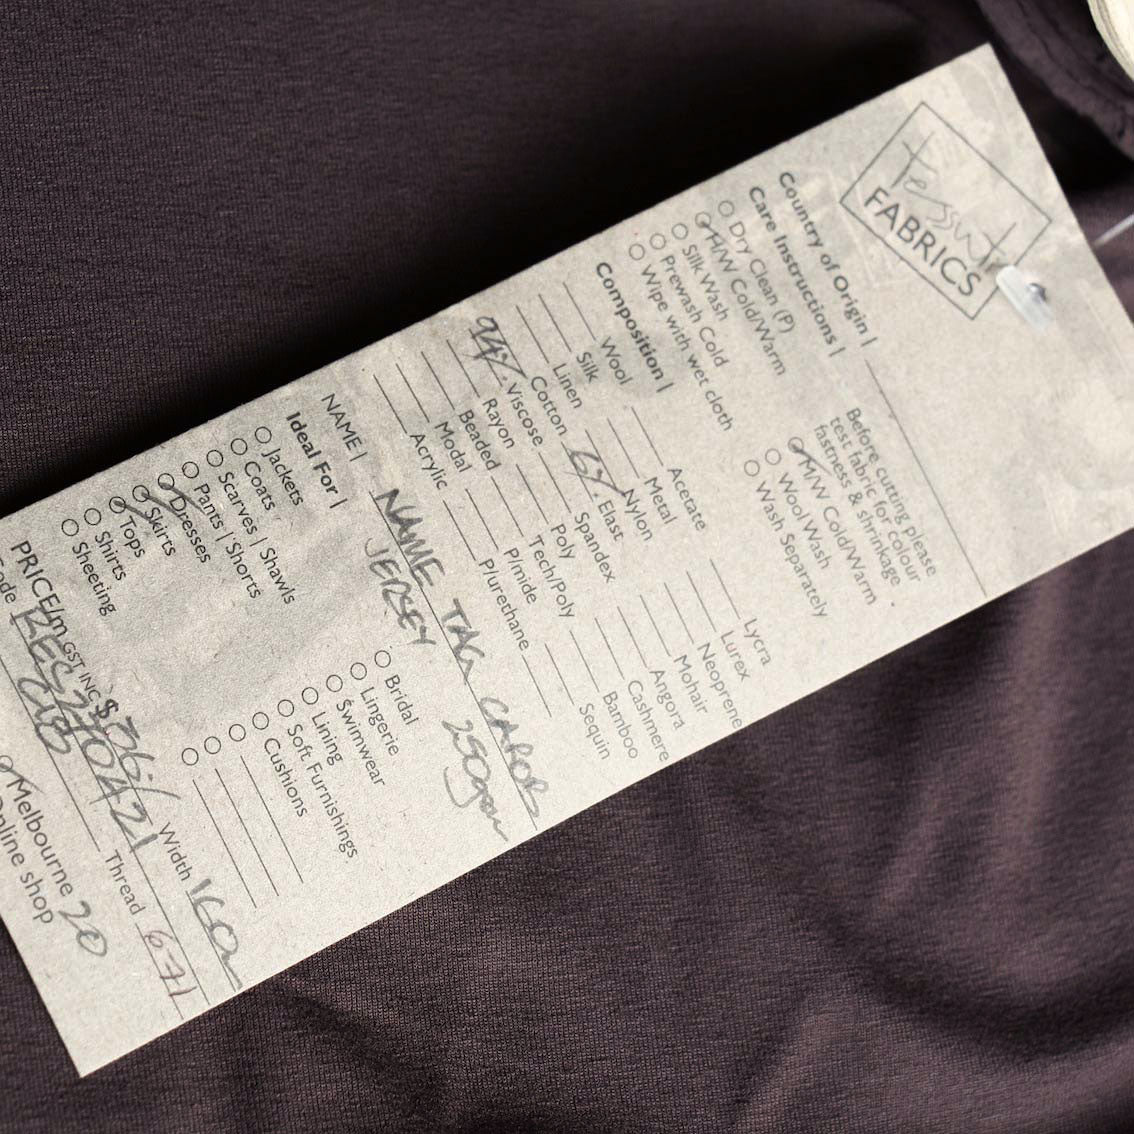 Tessuti
FABRICS
Country of Origin |
Care Instructions |
Dry Clean (P)
H/W Cold/Warm
Silk Wash
Prewash Cold
Wipe with wet cloth
Before cutting please
test fabric for colour
fastness & shrinkage
M/W Cold/Warm
Wool Wash
Wash Separately
Composition |
Wool
Silk
Linen
Cotton
94% Viscose
Rayon
Beaded
Modal
Acrylic
Acetate
Metal
Nylon
6% Elast
Spandex
Poly
Tech/Poly
P/mide
Plurethane
Lycra
Lurex
Neoprene
Mohair
Angora
Cashmere
Bamboo
Sequin
NAME | NAME TAG CAROB
JERSEY 250gsm
Ideal For |
Jackets
Coats
Scarves | Shawls
Pants | Shorts
Dresses
Skirts
Tops
Shirts
Sheeting
Bridal
Lingerie
Swimwear
Lining
Soft Furnishings
Cushions
PRICE/m GST INC $36/ Width 160
Thread 671
Melbourne 20
Online shop